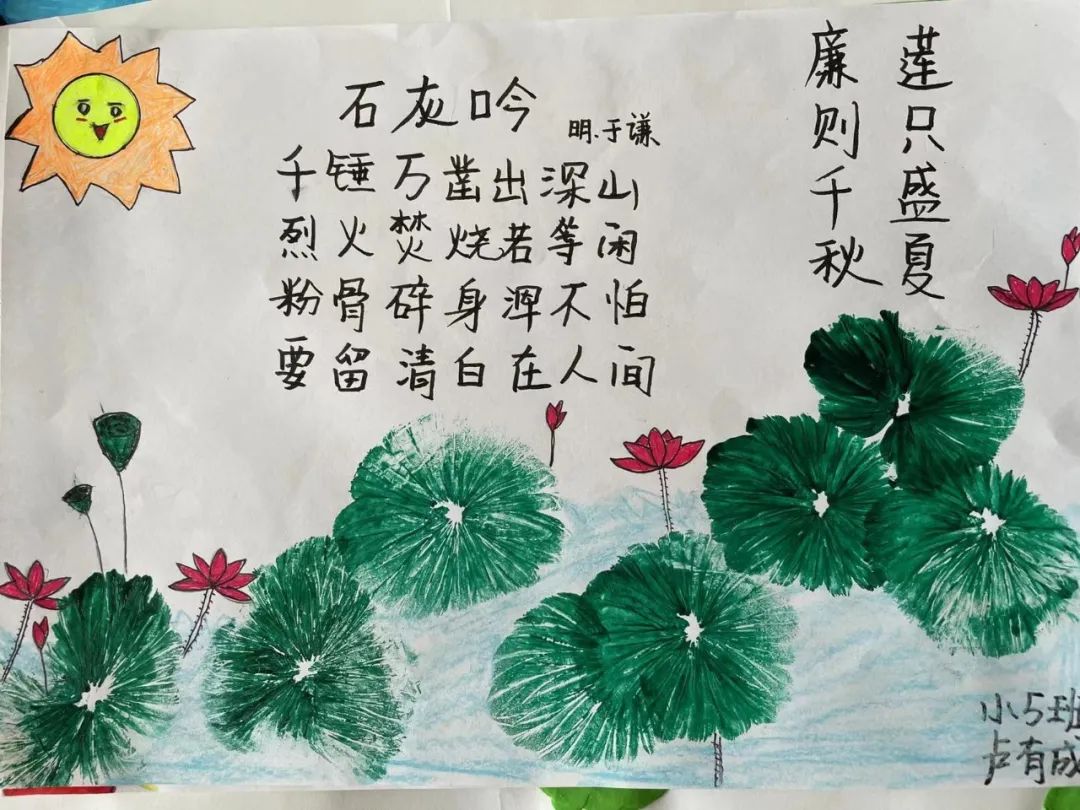 莲只盛夏
廉则千秋
石灰吟
明·于谦
千锤万凿出深山
烈火焚烧若等闲
粉骨碎身浑不怕
要留清白在人间
小5班
卢有成